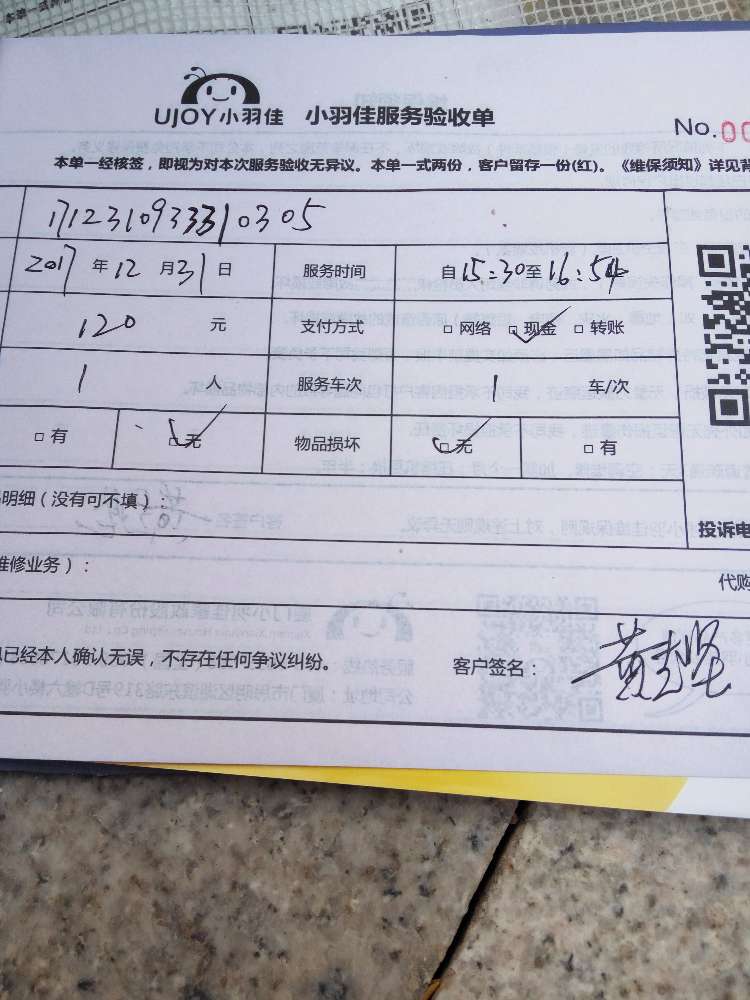 UJOY小羽佳 小羽佳服务验收单
No.00
本单一经核签，即视为对本次服务验收无异议。本单一式两份，客户留存一份(红)。《维保须知》详见背
17123109333310305
2017 年 12 月 31 日 服务时间 自15:30至16:54
120 元 支付方式 □ 网络 □ 现金 □ 转账
1 人 服务车次 1 车/次
□ 有 □ 无 物品损坏 □ 无 □ 有
明细（没有可不填）：
投诉电
维修业务）：
代购
已经本人确认无误，不存在任何争议纠纷。 客户签名： 黄志坚